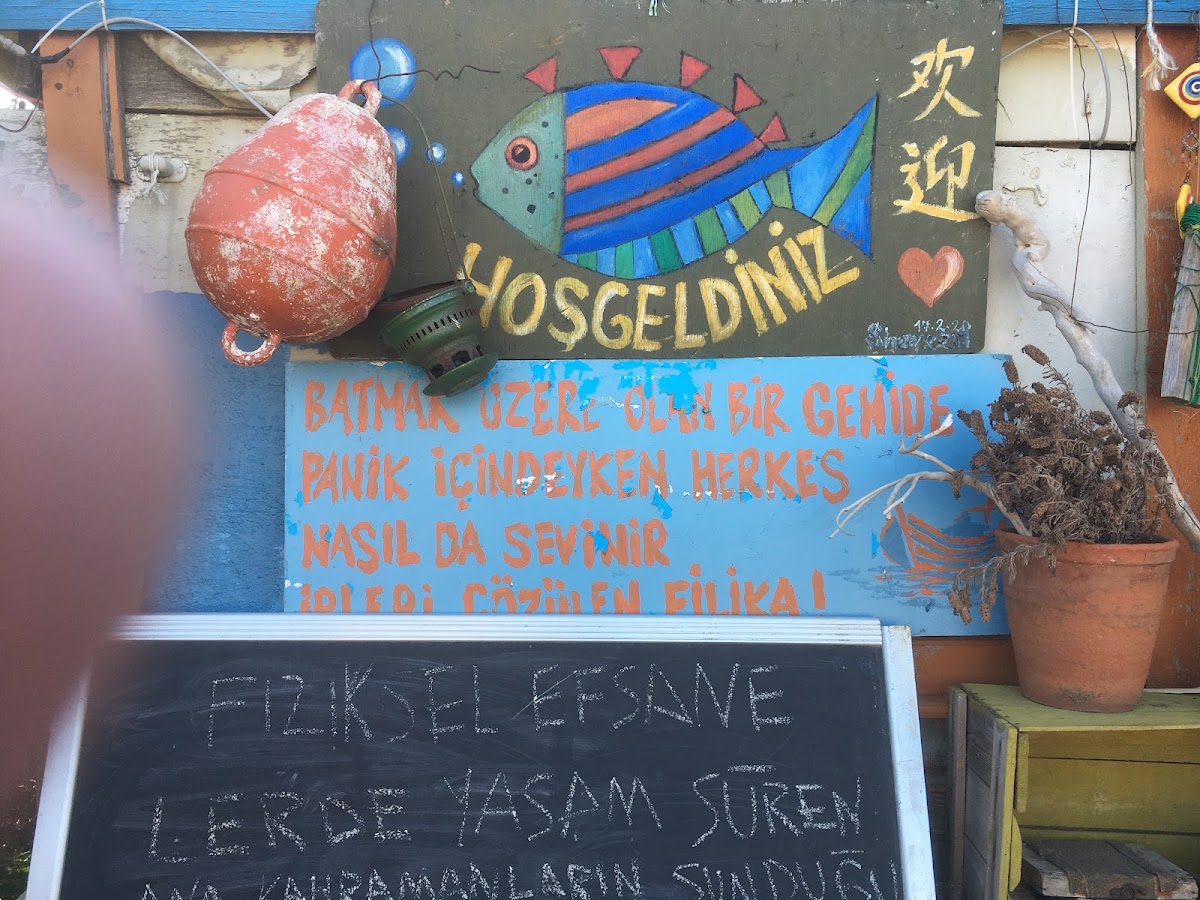 欢迎
HOŞGELDİNİZ
17.2.20
BATMAK ÜZERE OLAN BİR GEMİDE
PANİK İÇİNDEYKEN HERKES
NASIL DA SEVİNİR
İPLERİ ÇÖZÜLEN FİLİKA!
FIZIKSEL EFSANE
LERDE YAŞAM SÜREN
ANA KAHRAMANLARIN SUNDUĞU